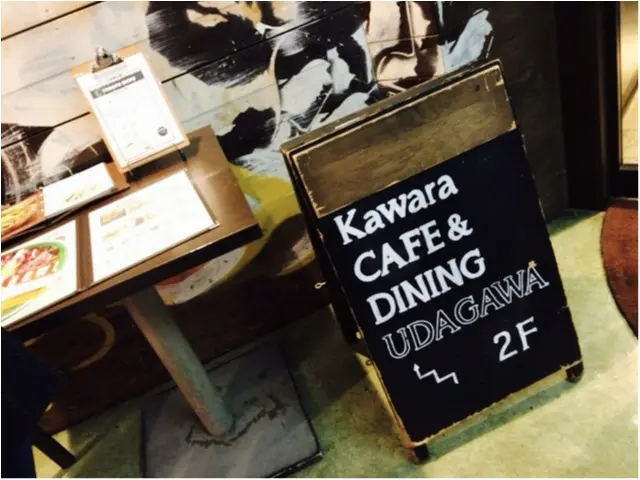 Kawara
CAFE &
DINING
UDAGAWA
2F